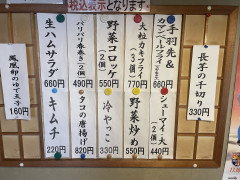 税込表示となります。
長芋の千切り
330円
手羽先&
カマンベールフライ
660円
シューマイ(2個)
440円
大粒カキフライ
(2個)
770円
野菜炒め
550円
野菜コロッケ
(2個)
550円
冷やっこ
330円
パリパリ春巻き(2個)
490円
タコの唐揚げ
820円
生ハムサラダ
660円
キムチ
220円
鳳凰卵のゆで玉子
160円